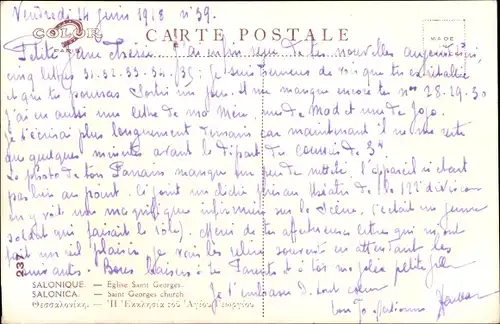 Vendredi 14 Juin 1918 n° 39.
COLOR PARIS
CARTE POSTALE
MADE
Petite Jane chérie, J'ai enfin reçu de tes nouvelles aujourd'hui,
cinq lettres 31-32-33-34-35; Je suis heureux de voir que tu es
et que tu pourras sortir un peu. Il me manque encore tes nos 28-29-30
J'ai eu aussi une lettre de ma Mère, une de Mad et une de Jojo.
Je t'écrirai plus longuement demain car maintenant il ne me reste
que quelques minutes avant le départ du courrier.
photo de ton manque un peu de netteté, l'appareil n'étant
pas bien au point. Ci joint un cliché pris au théâtre de la 122e division
on y voit une magnifique infirmière sur la scène, c'était un jeune
soldat qui faisait le rôle). Merci de tes affectueuses lettres qui m'ont
fait un réel plaisir je vais les relire souvent en attendant les
suivantes. Bons baisers à tes Parents et à toi ma jolie petite fille
Je t'embrasse de tout cœur
ton
237
SALONIQUE. — Eglise Saint Georges.
SALONICA. — Saint Georges church.
Θεσσαλονίκη. — Ἡ Ἐκκλησία τοῦ Ἁγίου Γεωργίου